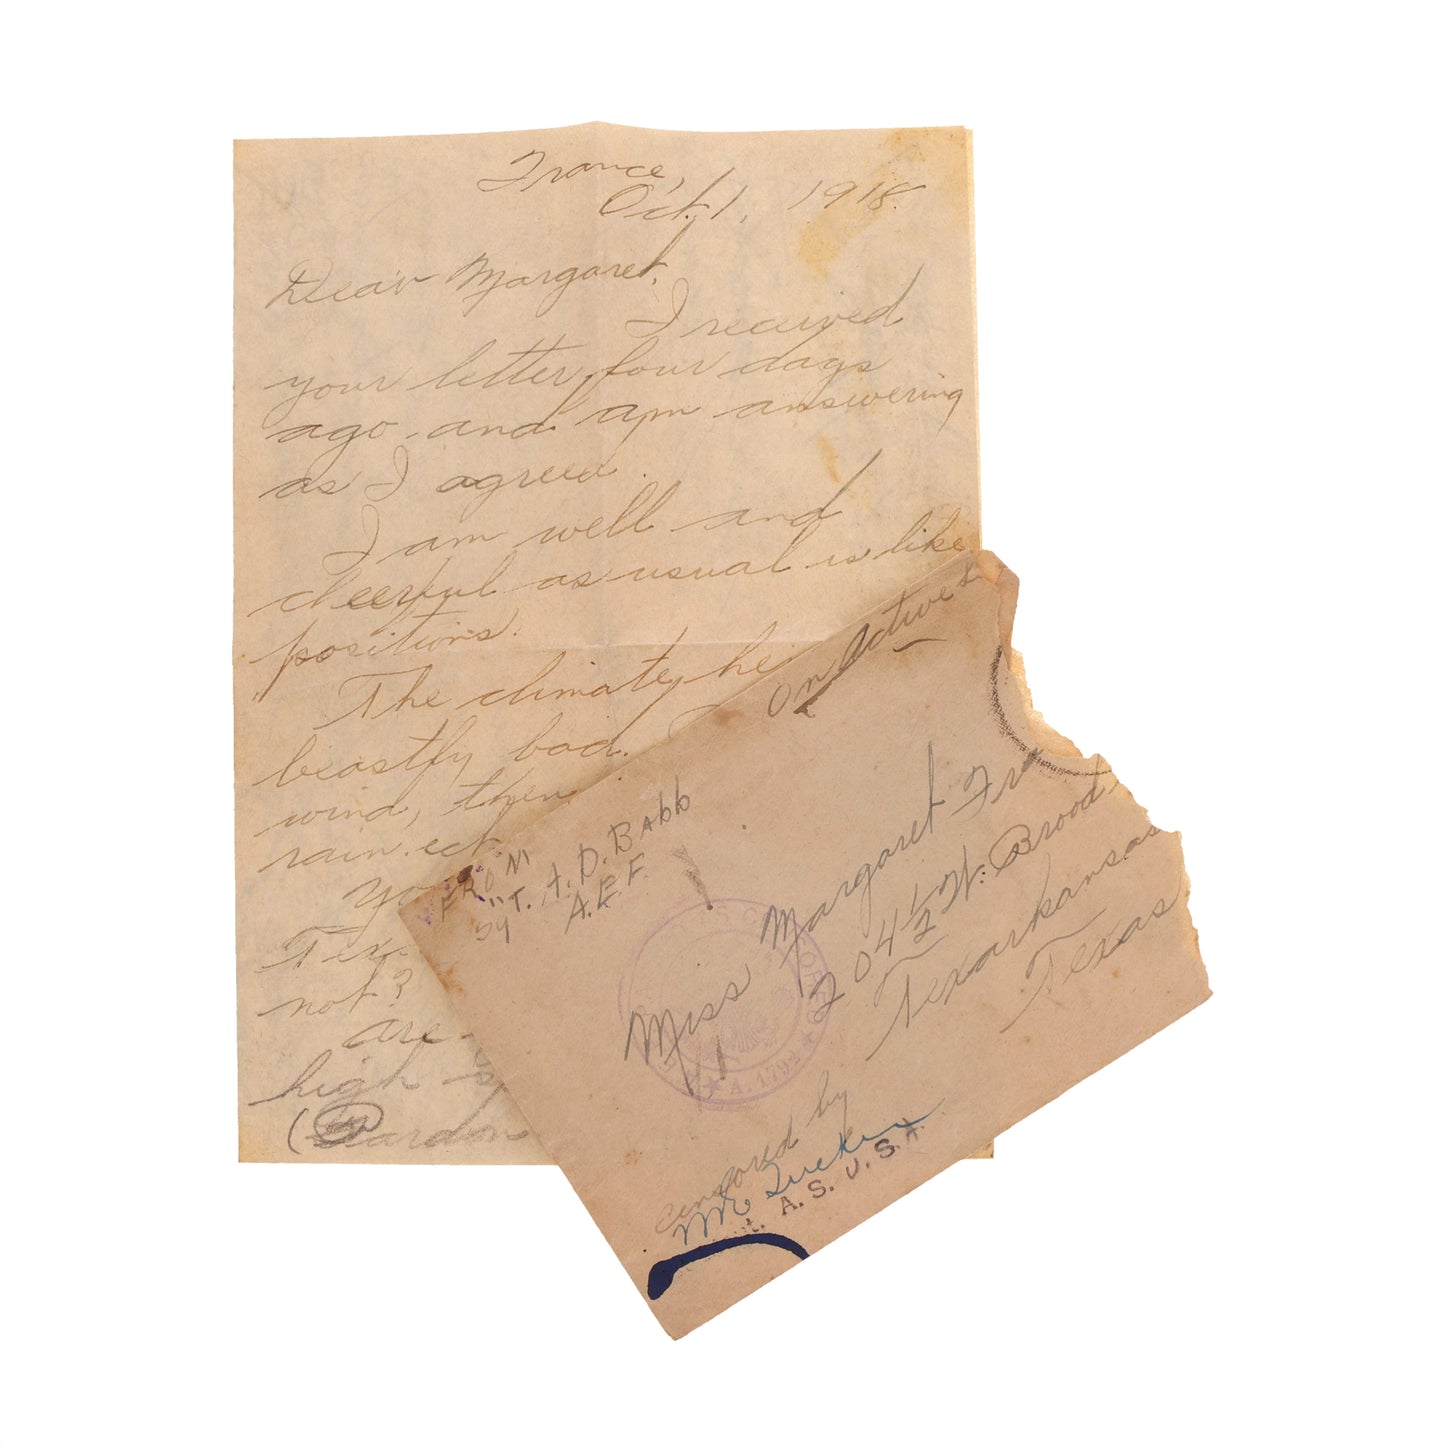 France,
Oct. 1, 1918.
Dear Margaret,
I received
your letter four days
ago and am answering
as I agreed.
I am well and
cheerful as usual is like
positions.
The climate he
beastly bad.
wind, then
rain. ect
Yo
Tex.
not?
are
high
(Pardon
On Active S
FROM
A. D. Babb
A.E.F.
Miss Margaret Fr
204½ W. Broad
Texarkansas
Texas.
A. 1793
Censored by
A.S. U.S.A.